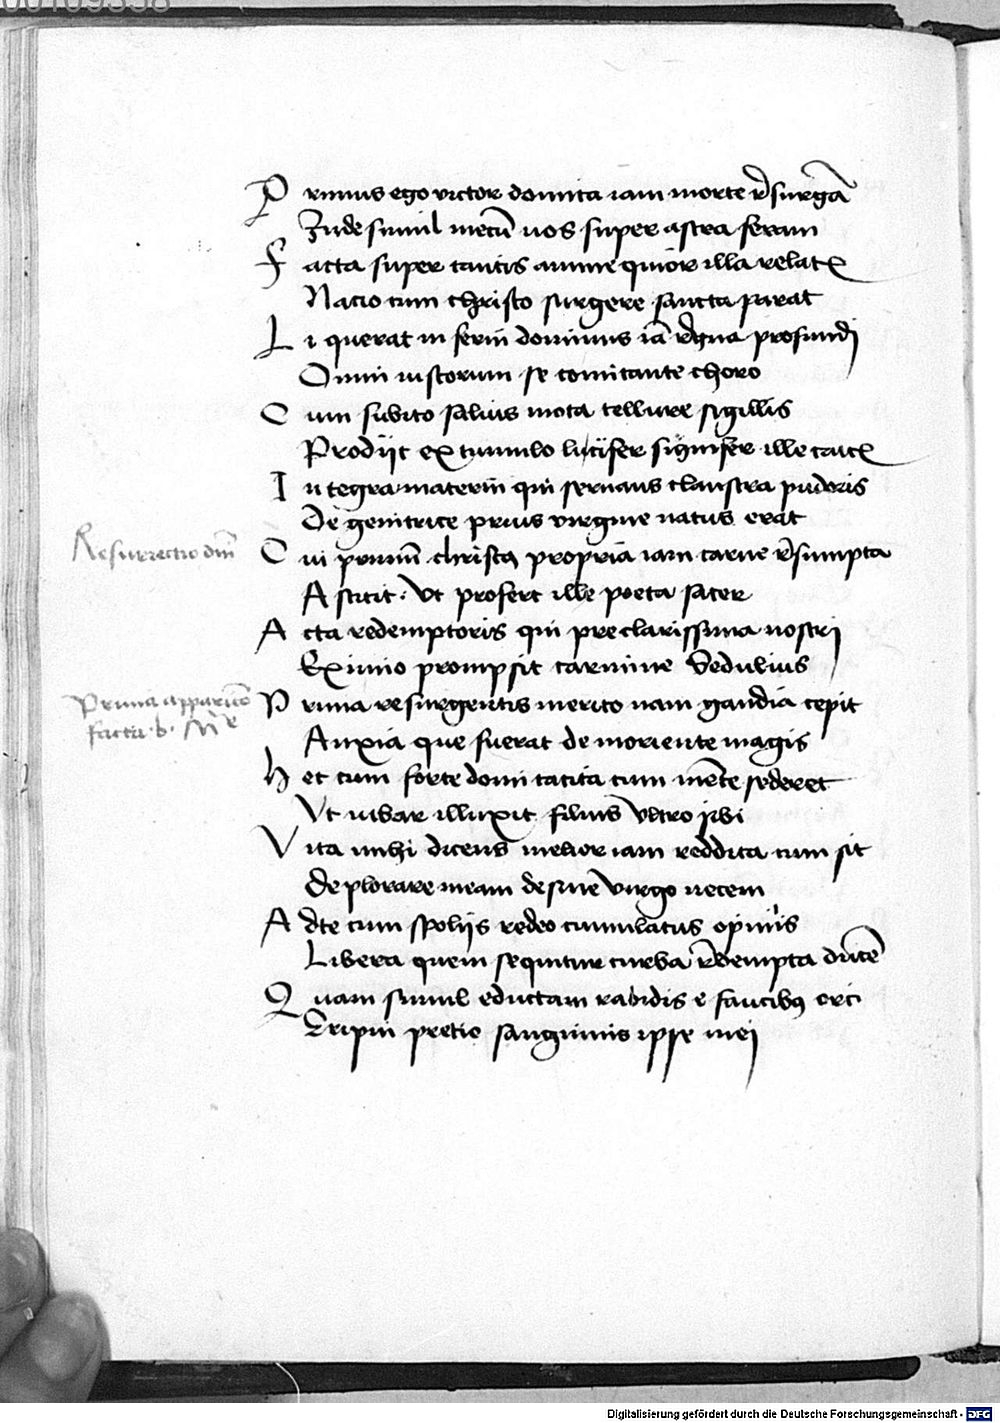 Primus ego victor domita iam morte r̄surgā
Inde simul mecū uos super astra feram
Facta super tantis anime quior illa relatꝭ
Nacio cum christo surgere sancta parat
Liquerat in ferni dominus iā r̄gna profundj
Omni iustorum se comitante choro
Cum subito saluis mota tellure sigillis
Prodijt ex tumulo lucifer signifer ille crucꝭ
In tegra materni qui seruans claustra pudoris
De genitrice prius virgine natus erat
Resurrectio dnī
Cui primū christꝰ propria iam carne r̄sumpta
Astitit. Vt profert ille poeta sacer
Acta redemptoris qui preclarissima nostrj
Eximio prompsit carmine Sedulius
Prima apparicio
facta b. Mr̄
Prima resurgentis merito nam gaudia cepit
Anxia que fuerat de moriente magis
Hec cum forte domi tacita cum mēte sederet
Vt iubar illuxit filius Vltro sibi
Vita mihi dicens melior iam reddita cum sit
De plorare meam desine Virgo necem
Adte cum spolijs redeo cumulatus opimis
Libera quem sequitur turba r̄dempta ducē
Quam simul eductam rabidis e faucibꝰ orci
Eripui pretio sanguinis ipse mej
Digitalisierung gefördert durch die Deutsche Forschungsgemeinschaft - DFG